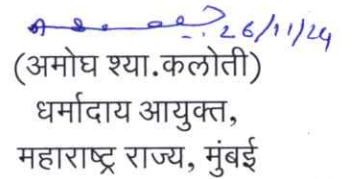 26/11/24
(अमोघ श्या.कलोती)
धर्मादाय आयुक्त,
महाराष्ट्र राज्य, मुंबई